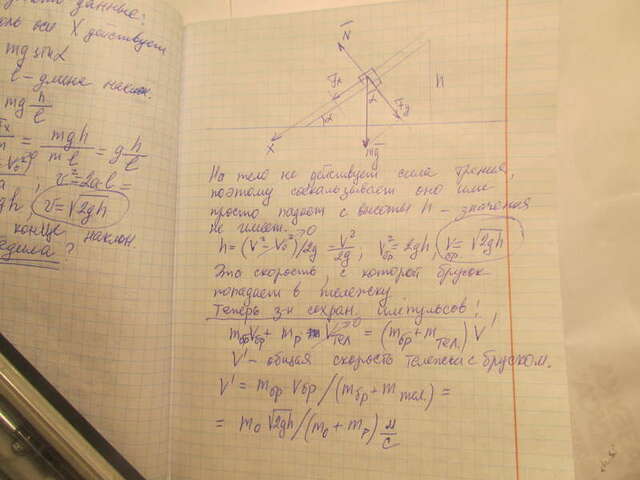 данные?
оси X действует
mg sin α
l – длина наклон.
mg h/l
= mgh/ml = g h/l
v² = 2al =
v = √2gh
конце наклон
?
N
Fx
α
h
Fy
α
X
mg
На тело не действует сила трения,
поэтому соскальзывает оно или
просто падает с высоты h – значения
не имеет.
h = (V² – V₀²→0)/2g = V²/2g, V²бр = 2gh, Vбр = √2gh
Это скорость, с которой брусок
попадает в тележку.
Теперь з-н сохран. импульсов!
mбр Vбр + mт Vтел→0 = (mбр + mтел.) V'
V' – общая скорость тележки с бруском.
V' = mбр · Vбр/(mбр + mтел.) =
= m₀ √2gh/(m₀ + mт) м/с